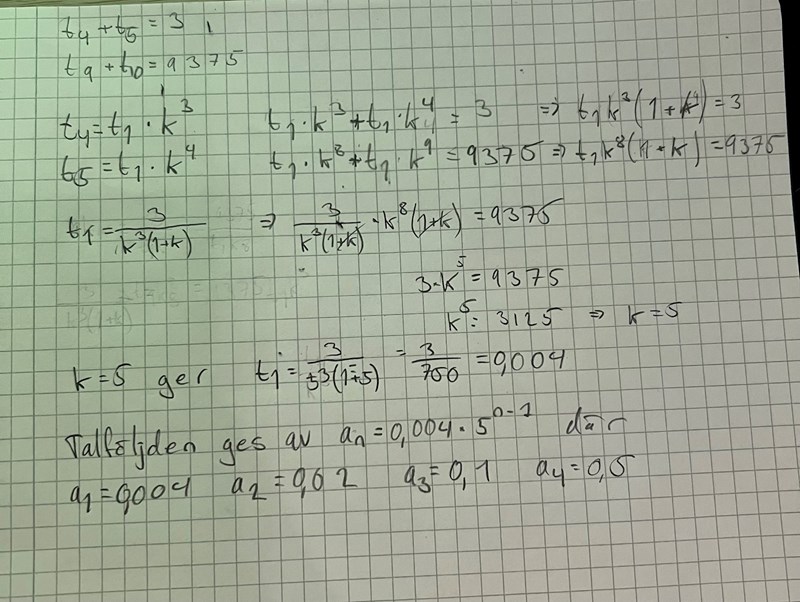 t₄ + t₅ = 3
t₉ + t₁₀ = 9375
t₄ = t₁ · k³    t₁ · k³ + t₁ · k⁴ = 3 ⇒ t₁k³(1+k) = 3
t₅ = t₁ · k⁴    t₁ · k⁸ + t₁ · k⁹ = 9375 ⇒ t₁k⁸(1+k) = 9375
t₁ = 3/(k³(1+k)) ⇒ 3/(k³(1+k)) · k⁸(1+k) = 9375
3·k⁵ = 9375
k⁵ = 3125 ⇒ k = 5
k = 5 ger t₁ = 3/(5³(1+5)) = 3/750 = 0,004
Talföljden ges av aₙ = 0,004 · 5ⁿ⁻¹ där
a₁ = 0,004 a₂ = 0,02 a₃ = 0,1 a₄ = 0,5